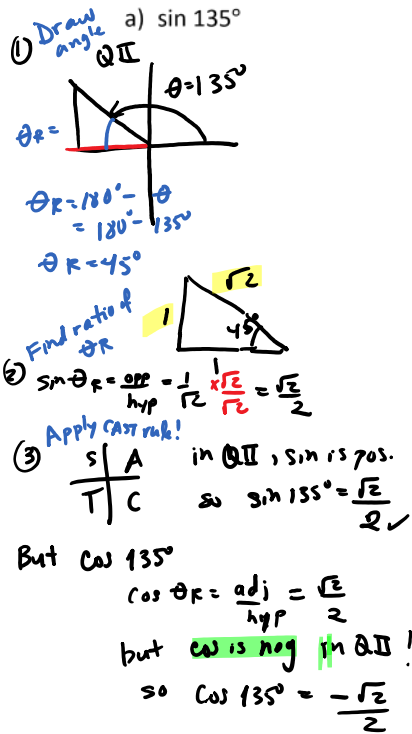 Draw angle
a) sin 135°
① QII
θ = 135°
θR =
θR = 180° - θ
= 180° - 135°
θR = 45°
√2
1
45°
1
Find ratio of θR
② sin θR = opp/hyp = 1/√2 × √2/√2 = √2/2
Apply CAST rule!
③ S A
T C
in QII, sin is pos.
so sin 135° = √2/2 ✓
But cos 135°
cos θR = adj/hyp = √2/2
but cos is neg in QII!
so cos 135° = -√2/2